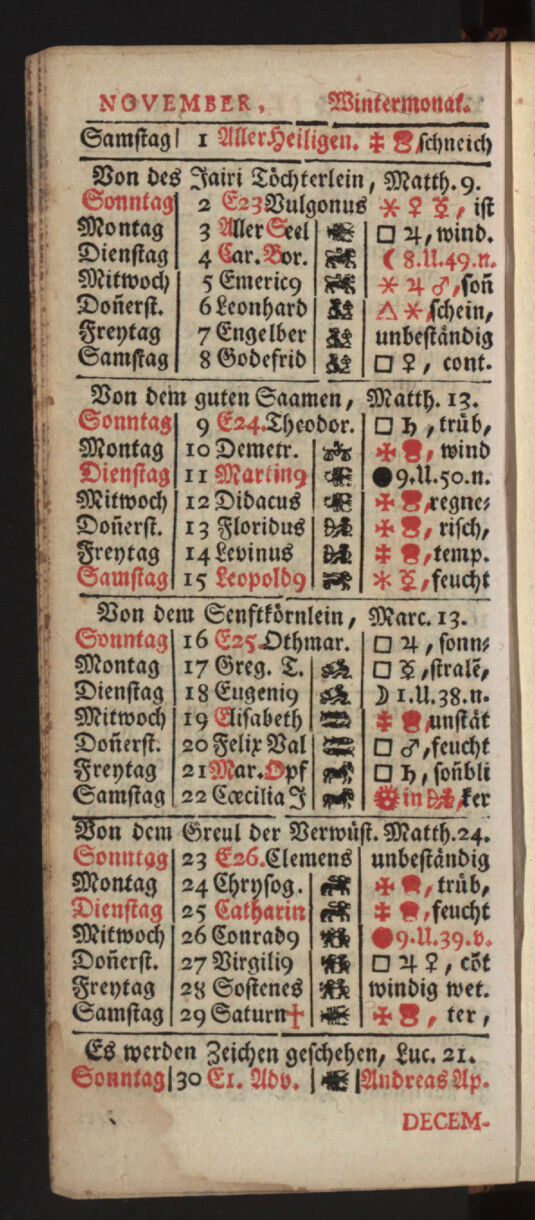 NOVEMBER, Wintermonat.
Samstag 1 Aller Heiligen. schneich
Von des Jairi Töchterlein, Matth. 9.
Sonntag 2 E23 Vulgonus ⚹ ♀ ☿, ist
Montag 3 Aller Seel □ ♃, wind.
Dienstag 4 Car. Bor. ☾ 8. U. 49. n.
Mitwoch 5 Emeric9 ⚹ ♃ ♂, soñ
Doñerst. 6 Leonhard △ ⚹, schein,
Freytag 7 Engelber unbeståndig
Samstag 8 Godefrid □ ♀, cont.
Von dem guten Saamen, Matth. 13.
Sonntag 9 E24. Theodor. □ ♄, trüb,
Montag 10 Demetr. wind
Dienstag 11 Martin9 ● 9. U. 50. n.
Mitwoch 12 Didacus regne⸗
Doñerst. 13 Floridus risch,
Freytag 14 Levinus temp.
Samstag 15 Leopold9 ⚹ ☿, feucht
Von dem Senftkörnlein, Marc. 13.
Sonntag 16 E25. Othmar. □ ♃, sonn⸗
Montag 17 Greg. T. □ ☿, stralẽ,
Dienstag 18 Eugeni9 ☽ 1. U. 38. n.
Mitwoch 19 Elisabeth unståt
Doñerst. 20 Felix Val □ ♂, feucht
Freytag 21 Mar. Opf □ ♄, soñbli
Samstag 22 Cæcilia J in ker
Von dem Greul der Verwüst. Matth. 24.
Sonntag 23 E26. Clemens unbeståndig
Montag 24 Chrysog. trüb,
Dienstag 25 Catharin feucht
Mitwoch 26 Conrad9 ● 9. U. 39. v.
Doñerst. 27 Virgili9 □ ♃ ♀, cöt
Freytag 28 Sostenes windig wet.
Samstag 29 Saturn† ter,
Es werden Zeichen geschehen, Luc. 21.
Sonntag 30 E1. Adv. Andreas Ap.
DECEM-